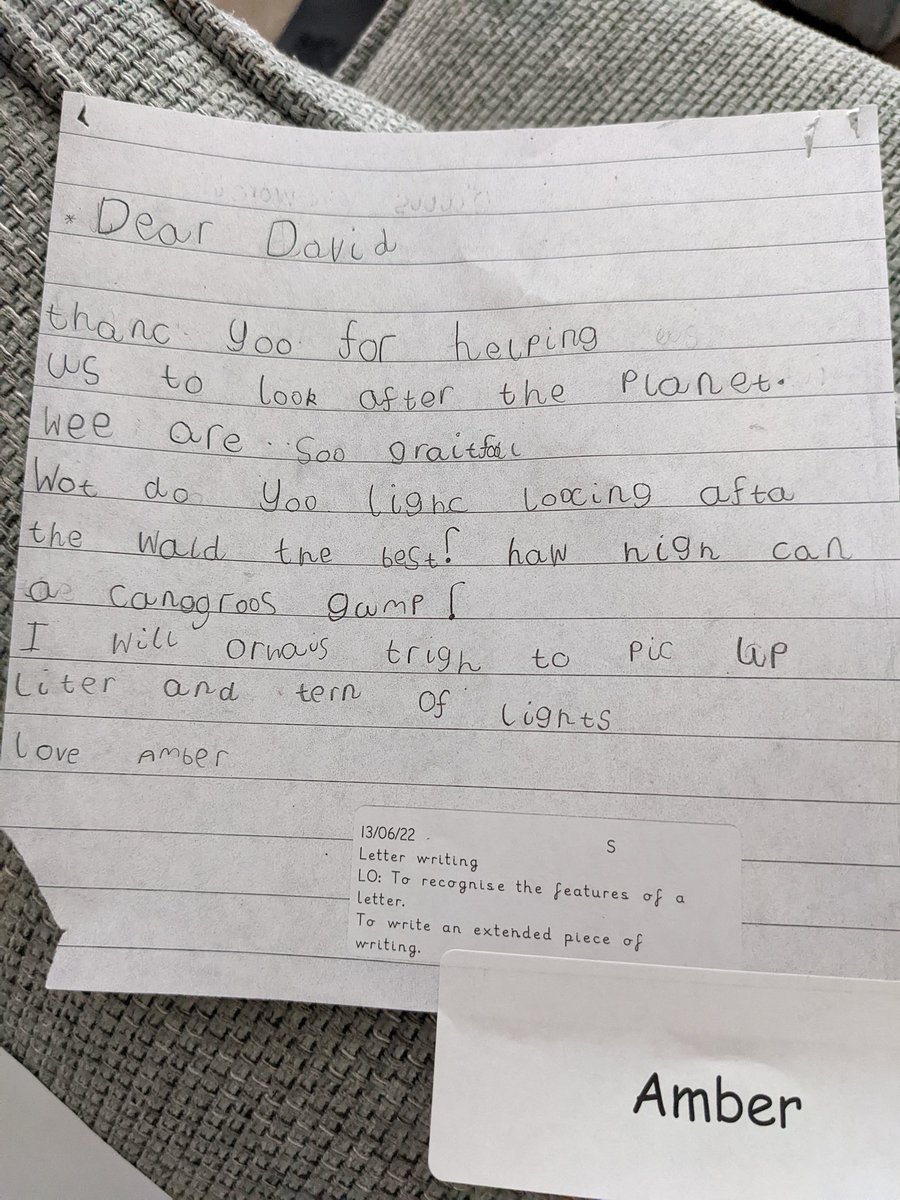 * Dear David
thanc yoo for helping
us to look after the Planet.
Wee are soo graitfool
Wot do yoo lighc loocing afta
the wald the best? haw high can
a canggroos gump?
I will orwais trigh to pic up
liter and tern of lights
love Amber
13/06/22 S
Letter writing
LO: To recognise the features of a
letter.
To write an extended piece of
writing.
Amber